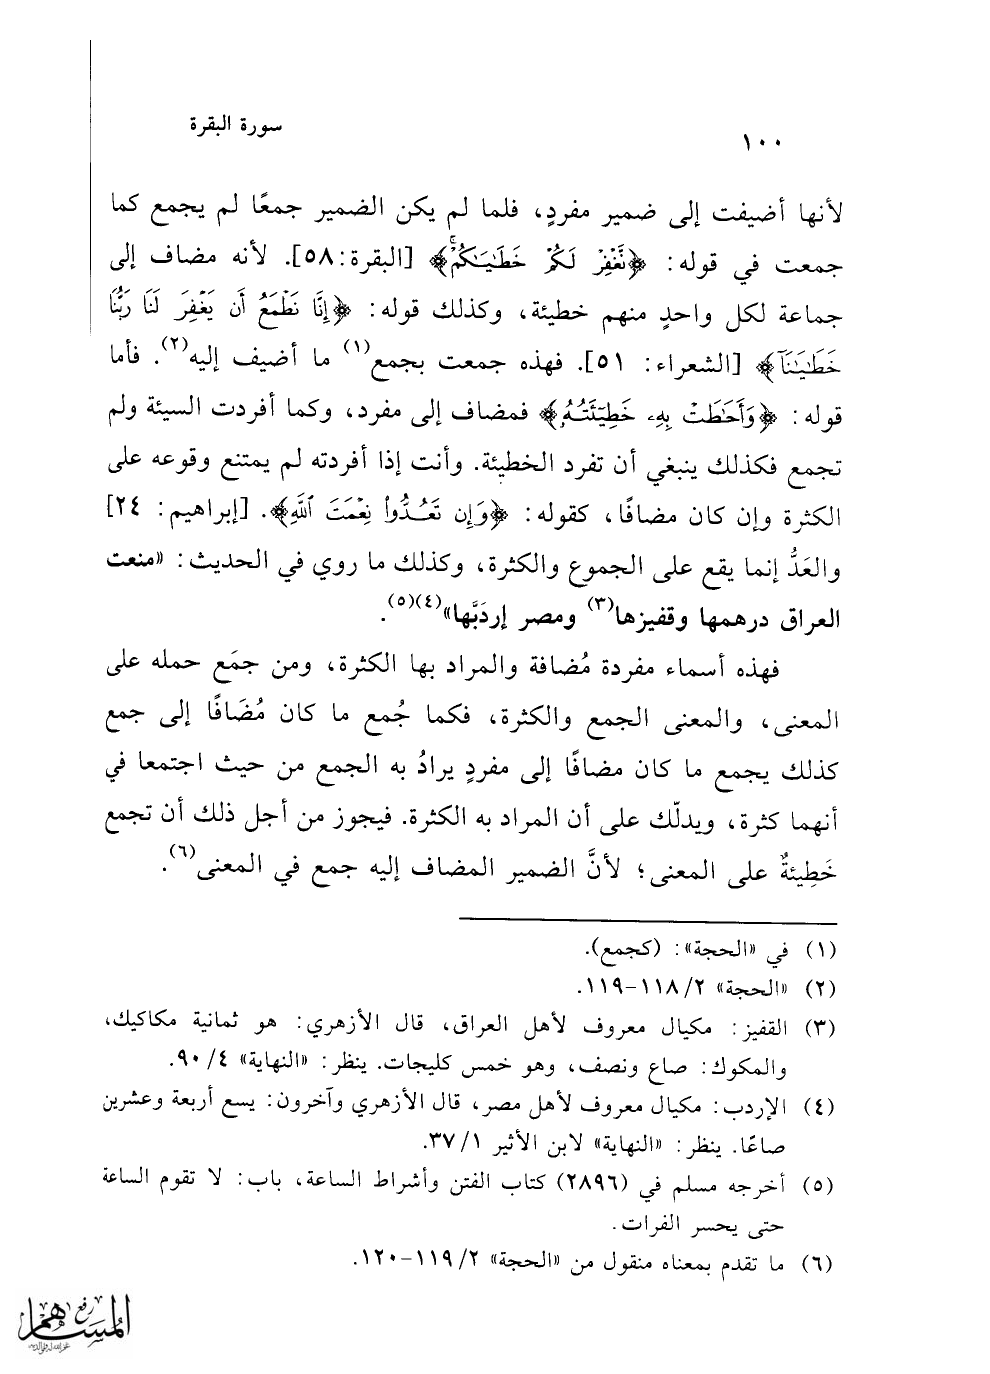 سورة البقرة
١٠٠
لأنها أضيفت إلى ضمير مفردٍ، فلما لم يكن الضمير جمعًا لم يجمع كما
جمعت في قوله: ﴿نَّغْفِرْ لَكُمْ خَطَٰيَٰكُمْ﴾ [البقرة:٥٨]. لأنه مضاف إلى
جماعة لكل واحدٍ منهم خطيئة، وكذلك قوله: ﴿إِنَّا نَطْمَعُ أَن يَغْفِرَ لَنَا رَبُّنَا
خَطَٰيَٰنَآ﴾ [الشعراء: ٥١]. فهذه جمعت بجمع(١) ما أضيف إليه(٢). فأما
قوله: ﴿وَأَحَٰطَتْ بِهِۦ خَطِيٓـَٔتُهُۥ﴾ فمضاف إلى مفرد، وكما أفردت السيئة ولم
تجمع فكذلك ينبغي أن تفرد الخطيئة. وأنت إذا أفردته لم يمتنع وقوعه على
الكثرة وإن كان مضافًا، كقوله: ﴿وَإِن تَعُدُّواْ نِعْمَتَ ٱللَّهِ﴾. [إبراهيم: ٢٤]
والعَدُّ إنما يقع على الجموع والكثرة، وكذلك ما روي في الحديث: «منعت
العراق درهمها وقفيزها(٣) ومصر إردَبَّها»(٤)(٥).
فهذه أسماء مفردة مُضافة والمراد بها الكثرة، ومن جمَع حمله على
المعنى، والمعنى الجمع والكثرة، فكما جُمع ما كان مُضَافًا إلى جمع
كذلك يجمع ما كان مضافًا إلى مفردٍ يرادُ به الجمع من حيث اجتمعا في
أنهما كثرة، ويدلّك على أن المراد به الكثرة. فيجوز من أجل ذلك أن تجمع
خَطِيئةٌ على المعنى؛ لأنَّ الضمير المضاف إليه جمع في المعنى(٦).
(١) في «الحجة»: (كجمع).
(٢) «الحجة» ٢/ ١١٨-١١٩.
(٣) القفيز: مكيال معروف لأهل العراق، قال الأزهري: هو ثمانية مكاكيك،
والمكوك: صاع ونصف، وهو خمس كليجات. ينظر: «النهاية» ٤/ ٩٠.
(٤) الإردب: مكيال معروف لأهل مصر، قال الأزهري وآخرون: يسع أربعة وعشرين
صاعًا. ينظر: «النهاية» لابن الأثير ١/ ٣٧.
(٥) أخرجه مسلم في (٢٨٩٦) كتاب الفتن وأشراط الساعة، باب: لا تقوم الساعة
حتى يحسر الفرات.
(٦) ما تقدم بمعناه منقول من «الحجة» ٢/ ١١٩-١٢٠.
رفع
المساهم